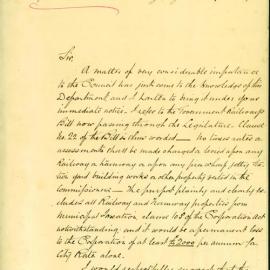 Sir,
A matter of very considerable importance
to the Council has just come to the knowledge of this
Department and I hasten to bring it under your
immediate notice. I refer to the Government Railways
Bill now passing through the Legislature. Clause
No. 22 of the Bill is thus worded — No taxes rates or
assessments shall be made charged or levied upon any
Railway or tramway or upon any pier wharf jetty Sta-
tion yard building works or other property vested in the
Commissioners — The purport plainly and clearly ex-
cludes all Railway and Tramway properties from
Municipal Taxation, clause 108 of the Corporation Act
notwithstanding, and it would be a permanent loss
to the Corporation of at least £2000 per annum in
City Rate alone.
I would respectfully suggest that the